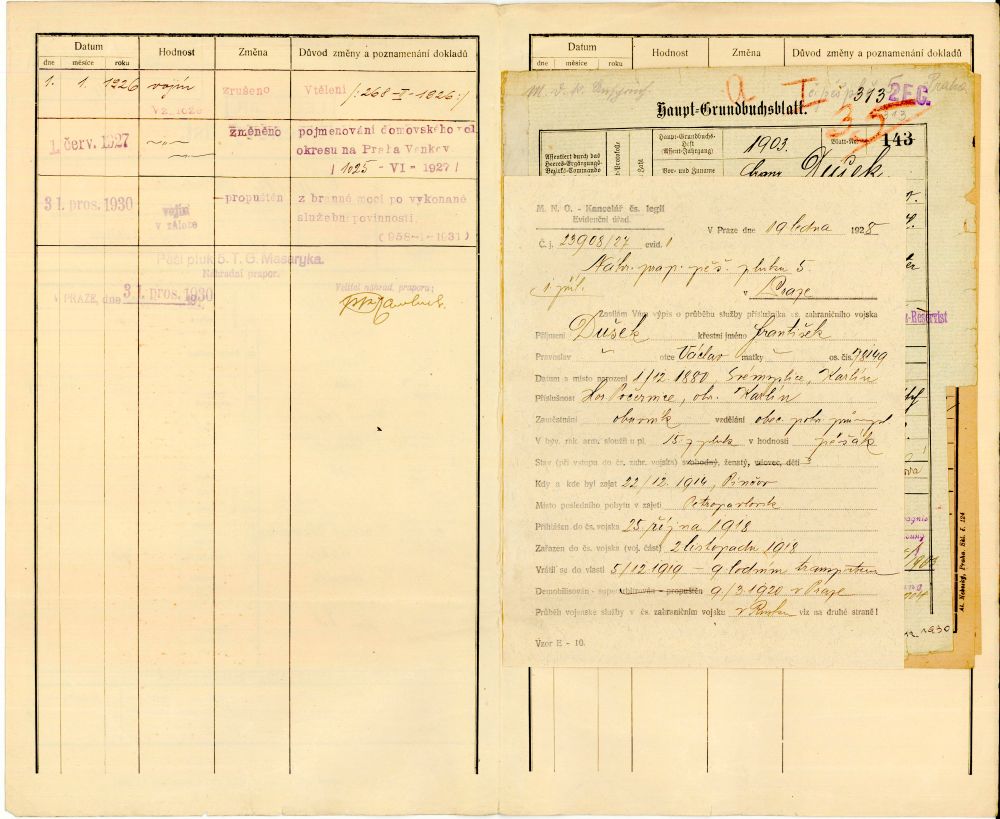 Datum Hodnost Změna Důvod změny a poznamenání dokladů
dne měsíce roku
1. 1. 1926 vojín zrušeno Vtělení /:268-I-1926:/
v z. loze
1. červ. 1927 změněno pojmenování domovského pol.
okresu na Praha Venkov
/ 1025 - VI - 1927 /
31. pros. 1930 vojín propuštěn z branné moci po vykonané
v záloze služební povinnosti.
( 958-I-1931 )
Pěší pluk 5. T. G. Masaryka.
Náhradní prapor.
V PRAZE, dne 31. pros. 1930
Velitel náhrad. praporu:
Datum Hodnost Změna Důvod změny a poznamenání dokladů
dne měsíce roku
a I 313 2EG.
Haupt-Grundbuchsblatt.
35 313
Assentiert durch das
Heeres-Ergänzungs-
Bezirks-Commando
Haupt-Grundbuchs-
Heft
(Assent-Jahrgang) 1903. Blatt-Nr. 143
Vor- und Zuname Franz Dušek
M. N. O. - Kancelář čs. legií
Evidenční úřad.
V Praze dne 19 ledna 1928
Č. j. 23908/27 evid. 1
Náhr. prap. pěš. pluku 5.
1 příl. v Praze
Zasílám Vám výpis o průběhu služby příslušníka čs. zahraničního vojska
Příjmení Dušek křestní jméno František
Pravoslav " otce Václav matky " os. čís. 78149
Datum a místo narození 1/12. 1880, Karlín
Příslušnost Hor. Počernice, okr. Karlín
Zaměstnání obuvník vzdělání obec. pokr. průmysl
V býv. rak. arm. sloužil u pl. 15 p pluk v hodnosti pěšák
Stav (při vstupu do čs. zahr. vojska) svobodný, ženatý, vdovec, dětí 3
Kdy a kde byl zajat 22/12. 1914, Pinčov
Místo posledního pobytu v zajetí Petropavlovsk
Přihlášen do čs. vojska 25. října 1918
Zařazen do čs. vojska (voj. část) 2 listopadu 1918
Vrátil se do vlasti 5/12 1919 - 9 lodním transportem
Demobilisován - superarbitrován - propuštěn 9/3. 1920 v Praze
Průběh vojenské služby v čs. zahraničním vojsku v Rusku viz na druhé straně!
Vzor E - 10.
Reservist
Al. Nohovský, Praha. Skl. č. 124
1930